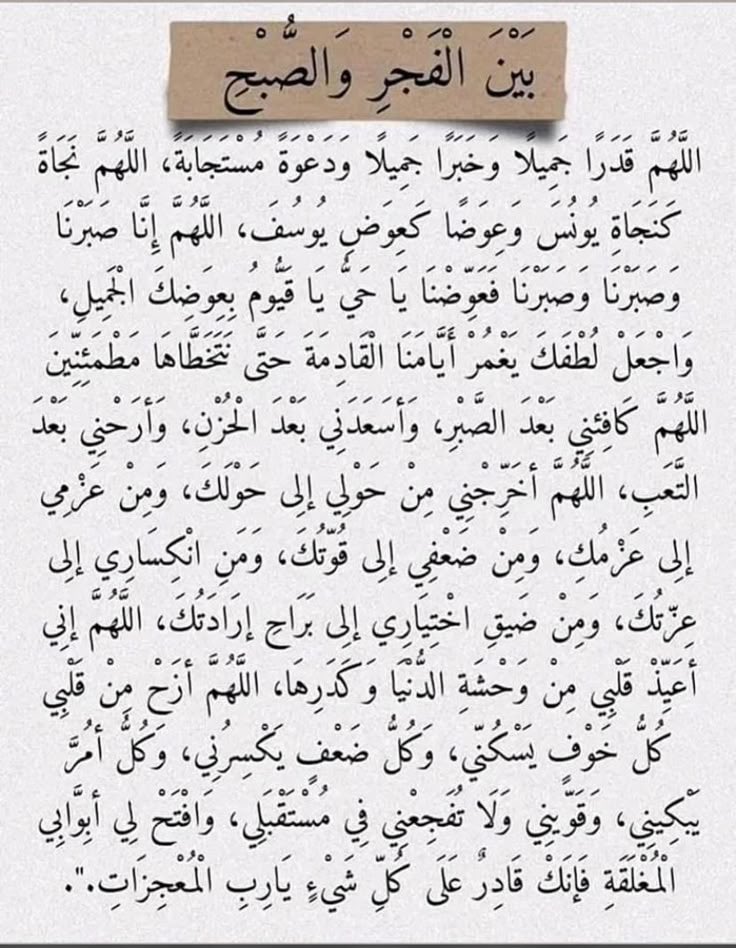 بَيْنَ الْفَجْرِ وَالصُّبْحِ
اللَّهُمَّ قَدَرًا جَمِيلًا وَخَبَرًا جَمِيلًا وَدَعْوَةً مُسْتَجَابَةً، اللَّهُمَّ نَجَاةً
كَنَجَاةِ يُونُسَ وَعِوَضًا كَعِوَضِ يُوسُفَ، اللَّهُمَّ إِنَّا صَبَرْنَا
وَصَبَرْنَا وَصَبَرْنَا فَعَوِّضْنَا يَا حَيُّ يَا قَيُّومُ بِعِوَضِكَ الْجَمِيلِ،
وَاجْعَلْ لُطْفَكَ يَغْمُرْ أَيَّامَنَا الْقَادِمَةَ حَتَّى نَتَخَطَّاهَا مَطْمَئِنِّينَ
اللَّهُمَّ كَافِئنِي بَعْدَ الصَّبْرِ، وَأسَعَدَنِي بَعْدَ الْحُزْنِ، وَأرَحْنِي بَعْدَ
التَّعَبِ، اللَّهُمَّ أخَرِّجْنِي مِنْ حَوْلِي إلِى حَوْلَكَ، وَمِنْ عَزْمِي
إلِى عَزْمُكِ، وَمِنْ ضَعْفِي إلِى قُوّتُكَ، وَمَنِ انْكِسَارِي إلِى
عِزّتُكَ، وَمِنْ ضَيقِ اخْتِيَارِي إلِى بَرَاحِ إرَادَتُكَ، اللَّهُمَّ إنِي
أعَيِّذْ قَلْبِي مِنْ وَحْشَةِ الدُّنْيَا وَكَدَرِهَا، اللَّهُمَّ أزَحْ مِنْ قَلْبِي
كُلُّ خَوْفٍ يَسْكُنّي، وَكُلُّ ضَعْفٍ يَكْسِرُنِي، وَكُلُّ أمُرَّ
يَبْكِينِي، وَقَوِّينِي وَلَا تُفَجِعْنِي فِي مُسْتَقْبَلِي، وَافْتَحْ لِي أبِوَّابِي
الْمُغْلَقَةِ فَإنَكْ قَادِرٌ عَلَى كُلِّ شَيْءٍ يَارِبِ الْمُعْجِزَاتِ.".